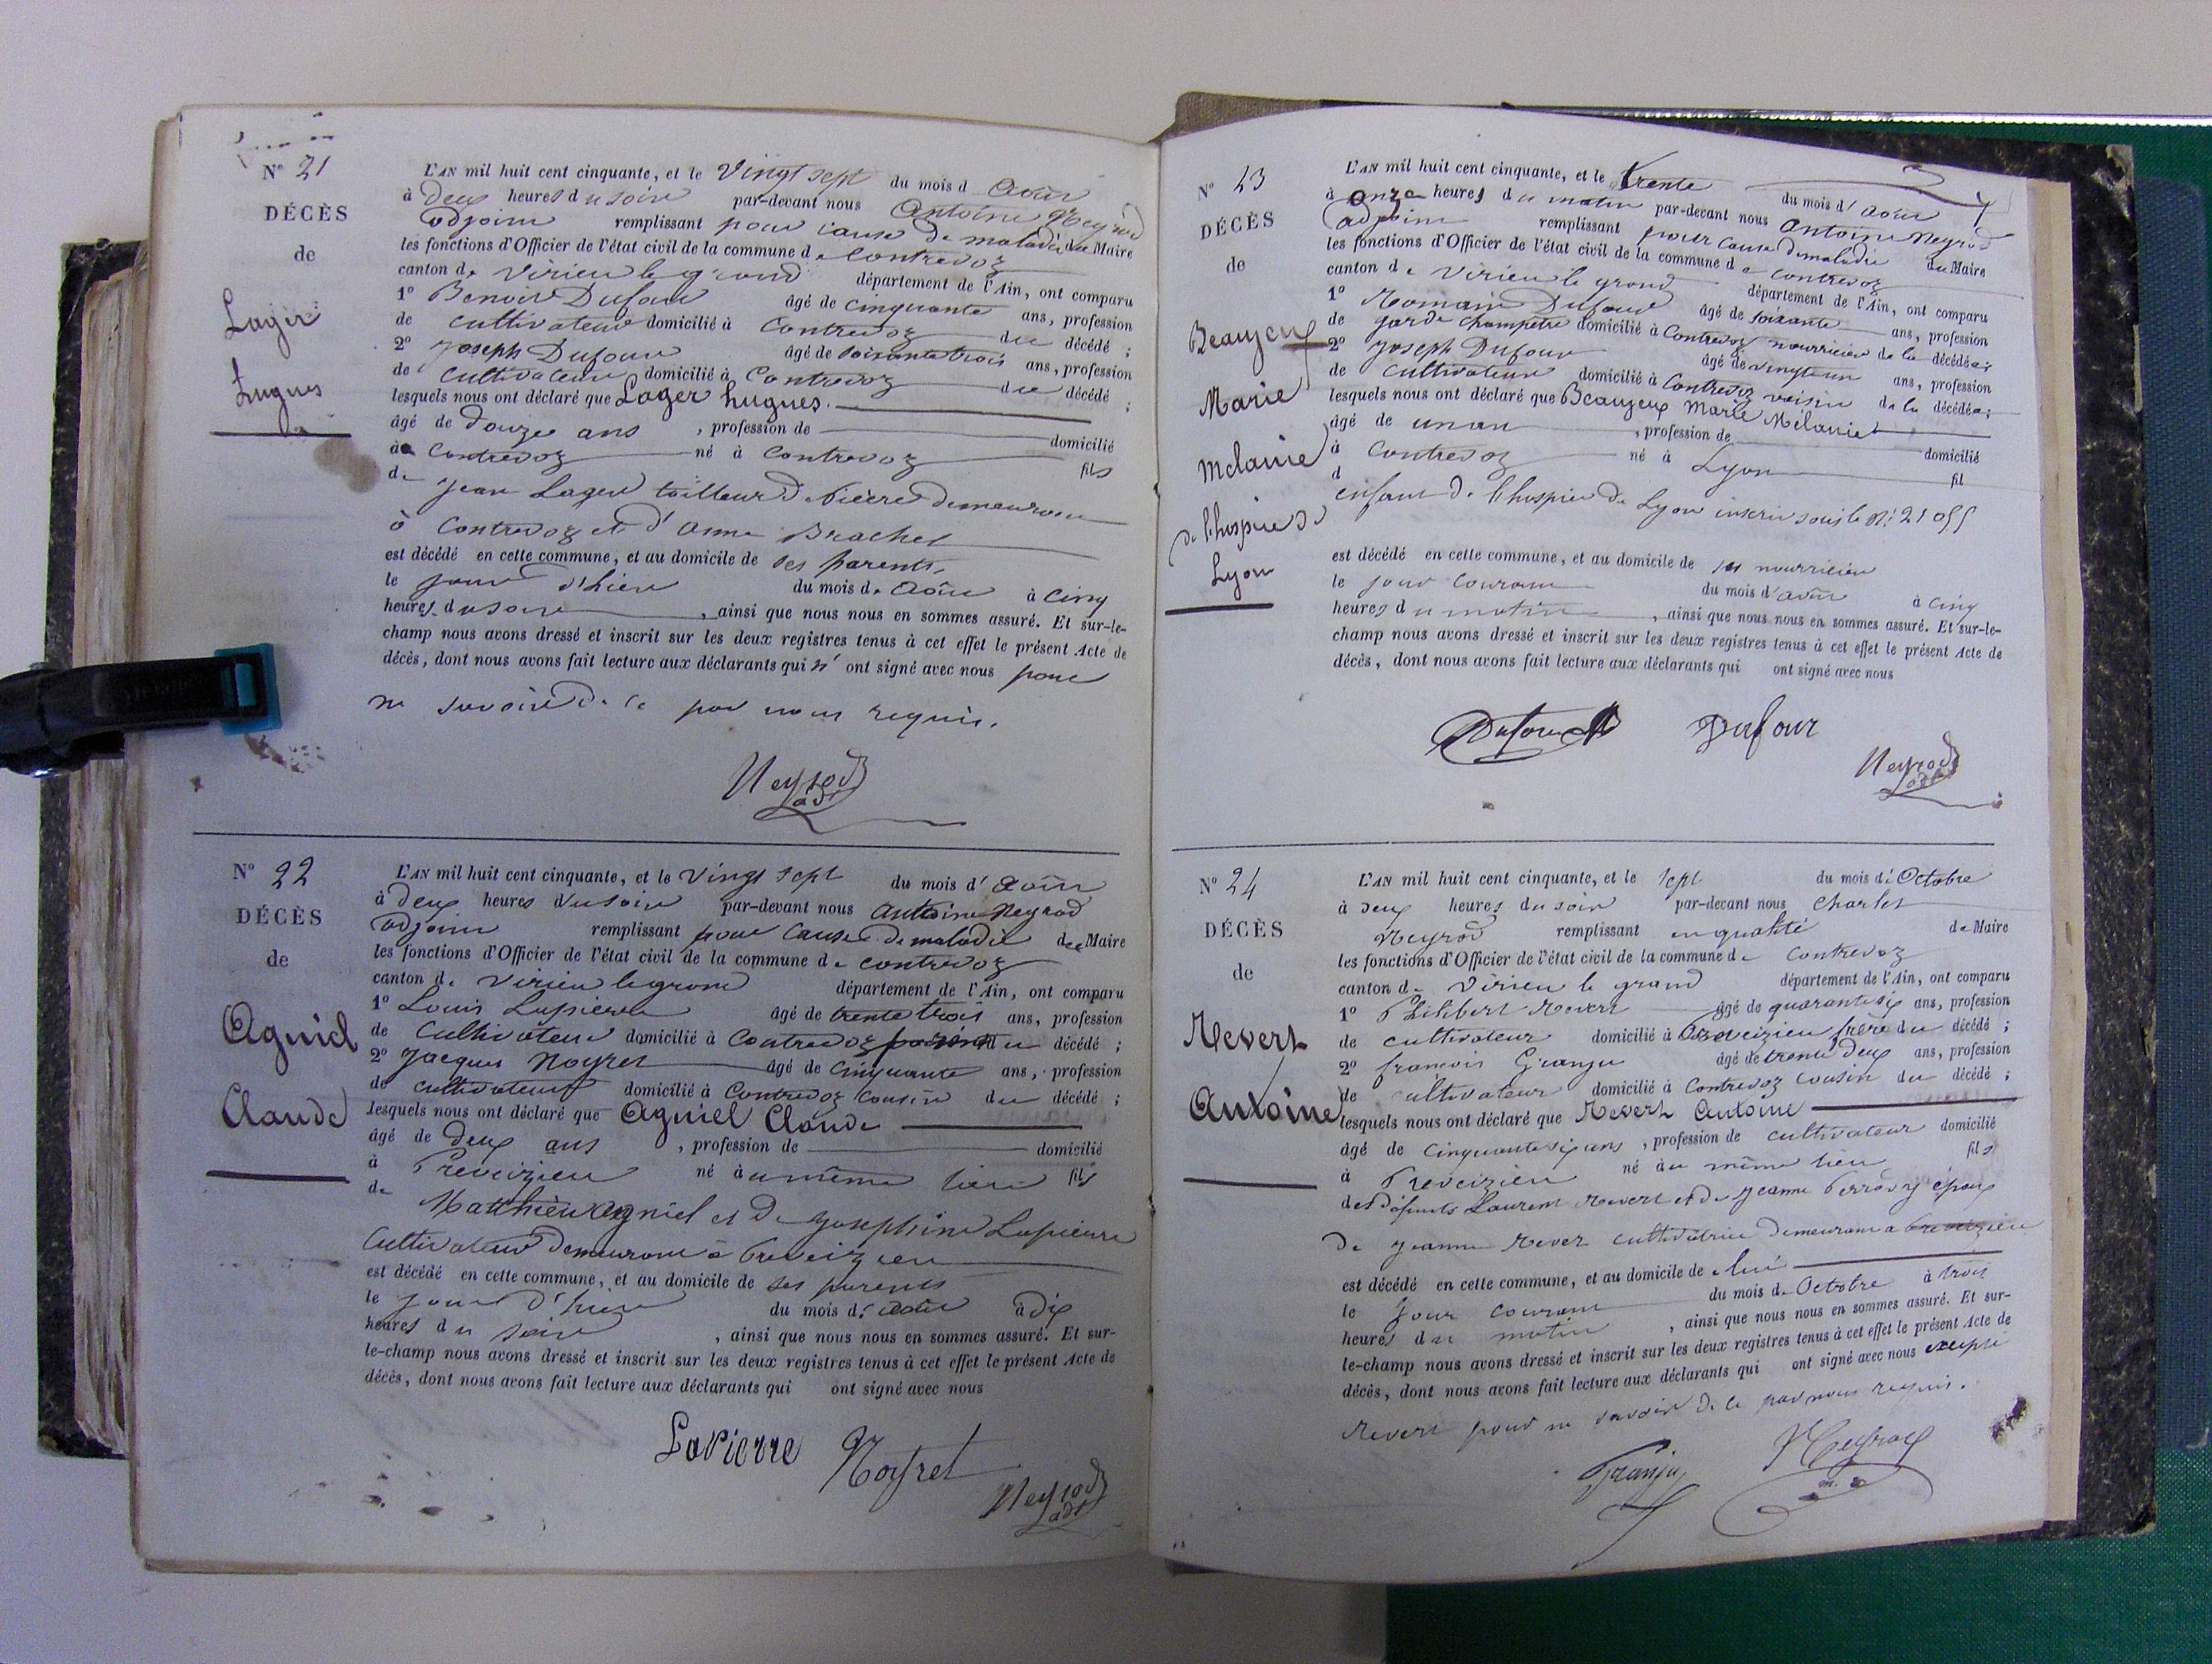 N° 21
DÉCÈS
de
Lager
hugues
L'AN mil huit cent cinquante, et le Vingt sept du mois d Août
à deux heures du soir par-devant nous Antoine Neyrod
adjoint remplissant pour cause de maladie du Maire
les fonctions d'Officier de l'état civil de la commune de Contrevoz
canton de Virieu le grand département de l'Ain, ont comparu
1° Benoit Dufour âgé de cinquante ans, profession
de cultivateur domicilié à Contrevoz du décédé ;
2° Joseph Dufour âgé de soixante trois ans, profession
de cultivateur domicilié à Contrevoz du décédé ;
lesquels nous ont déclaré que Lager hugues.
âgé de douze ans , profession de domicilié
à Contrevoz né à Contrevoz fils
de Jean Lager tailleur de pierre demeurant
à Contrevoz et d'anne Brachet
est décédé en cette commune, et au domicile de ses parents,
le jour d'hier du mois de Août à cinq
heures du soir , ainsi que nous nous en sommes assuré. Et sur-le-
champ nous avons dressé et inscrit sur les deux registres tenus à cet effet le présent Acte de
décès, dont nous avons fait lecture aux déclarants qui n'ont signé avec nous pour
ne savoir de ce par nous requis.
Neyrod
adt
N° 22
DÉCÈS
de
Agniel
Claude
L'AN mil huit cent cinquante, et le Vingt sept du mois d'Août
à deux heures du soir par-devant nous Antoine Neyrod
adjoint remplissant pour cause de maladie du Maire
les fonctions d'Officier de l'état civil de la commune de Contrevoz
canton de Virieu le grand département de l'Ain, ont comparu
1° Louis Lapierre âgé de trente trois ans, profession
de cultivateur domicilié à Contrevoz du décédé ;
2° Jacques Noyret âgé de Cinquante ans, profession
de cultivateur domicilié à Contrevoz cousin du décédé ;
lesquels nous ont déclaré que Agniel Claude
âgé de deux ans , profession de domicilié
à Preveizieu né au même lieu fils
de Matthieu Agniel et de Josephine Lapierre
Cultivateur demeurant à Preveizieu
est décédé en cette commune, et au domicile de ses parents
le jour d'hier du mois d'août à dix
heures du soir , ainsi que nous nous en sommes assuré. Et sur-
le-champ nous avons dressé et inscrit sur les deux registres tenus à cet effet le présent Acte de
décès, dont nous avons fait lecture aux déclarants qui ont signé avec nous
Lapierre Noyret
Neyrod
adt
N° 23
DÉCÈS
de
Beaujeux
Marie
Mélanie
de l'hospice de
Lyon
L'AN mil huit cent cinquante, et le trente du mois d'août
à onze heures du matin par-devant nous Antoine Neyrod
adjoint remplissant pour cause de maladie du Maire
les fonctions d'Officier de l'état civil de la commune de Contrevoz
canton de Virieu le grand département de l'Ain, ont comparu
1° Romain Dufour âgé de soixante ans, profession
de garde champêtre domicilié à Contrevoz nourricier de la décédée;
2° Joseph Dufour âgé de vingt un ans, profession
de cultivateur domicilié à Contrevoz voisin de la décédée;
lesquels nous ont déclaré que Beaujeux Marie Mélanie
âgé de un an , profession de domicilié
à Contrevoz né à Lyon fil
d enfant de l'hospice de Lyon inscrit sous le N°: 21 055
est décédé en cette commune, et au domicile de son nourricier
le jour courant du mois d'août à cinq
heures du matin , ainsi que nous nous en sommes assuré. Et sur-le-
champ nous avons dressé et inscrit sur les deux registres tenus à cet effet le présent Acte de
décès, dont nous avons fait lecture aux déclarants qui ont signé avec nous
Dufour Dufour
Neyrod
adt
N° 24
DÉCÈS
de
Revert
Antoine
L'AN mil huit cent cinquante, et le sept du mois d'Octobre
à deux heures du soir par-devant nous Charles
Neyrod remplissant en qualité de Maire
les fonctions d'Officier de l'état civil de la commune de Contrevoz
canton de Virieu le grand département de l'Ain, ont comparu
1° Philibert Revert âgé de quarante six ans, profession
de cultivateur domicilié à Preveizieu frère du décédé ;
2° françois Granju âgé de trente deux ans, profession
de cultivateur domicilié à Contrevoz cousin du décédé ;
lesquels nous ont déclaré que Revert Antoine
âgé de Cinquante six ans , profession de cultivateur domicilié
à Preveizieu né au même lieu fils
des défunts Laurent Revert et de Jeanne époux
de Jeanne Rever cultivatrice demeurant a Preveizieu
est décédé en cette commune, et au domicile de lui
le jour courant du mois de Octobre à trois
heures du matin , ainsi que nous nous en sommes assuré. Et sur-
le-champ nous avons dressé et inscrit sur les deux registres tenus à cet effet le présent Acte de
décès, dont nous avons fait lecture aux déclarants qui ont signé avec nous excepté
Revert pour ne savoir de ce par nous requis.
Granju Neyrod
m.